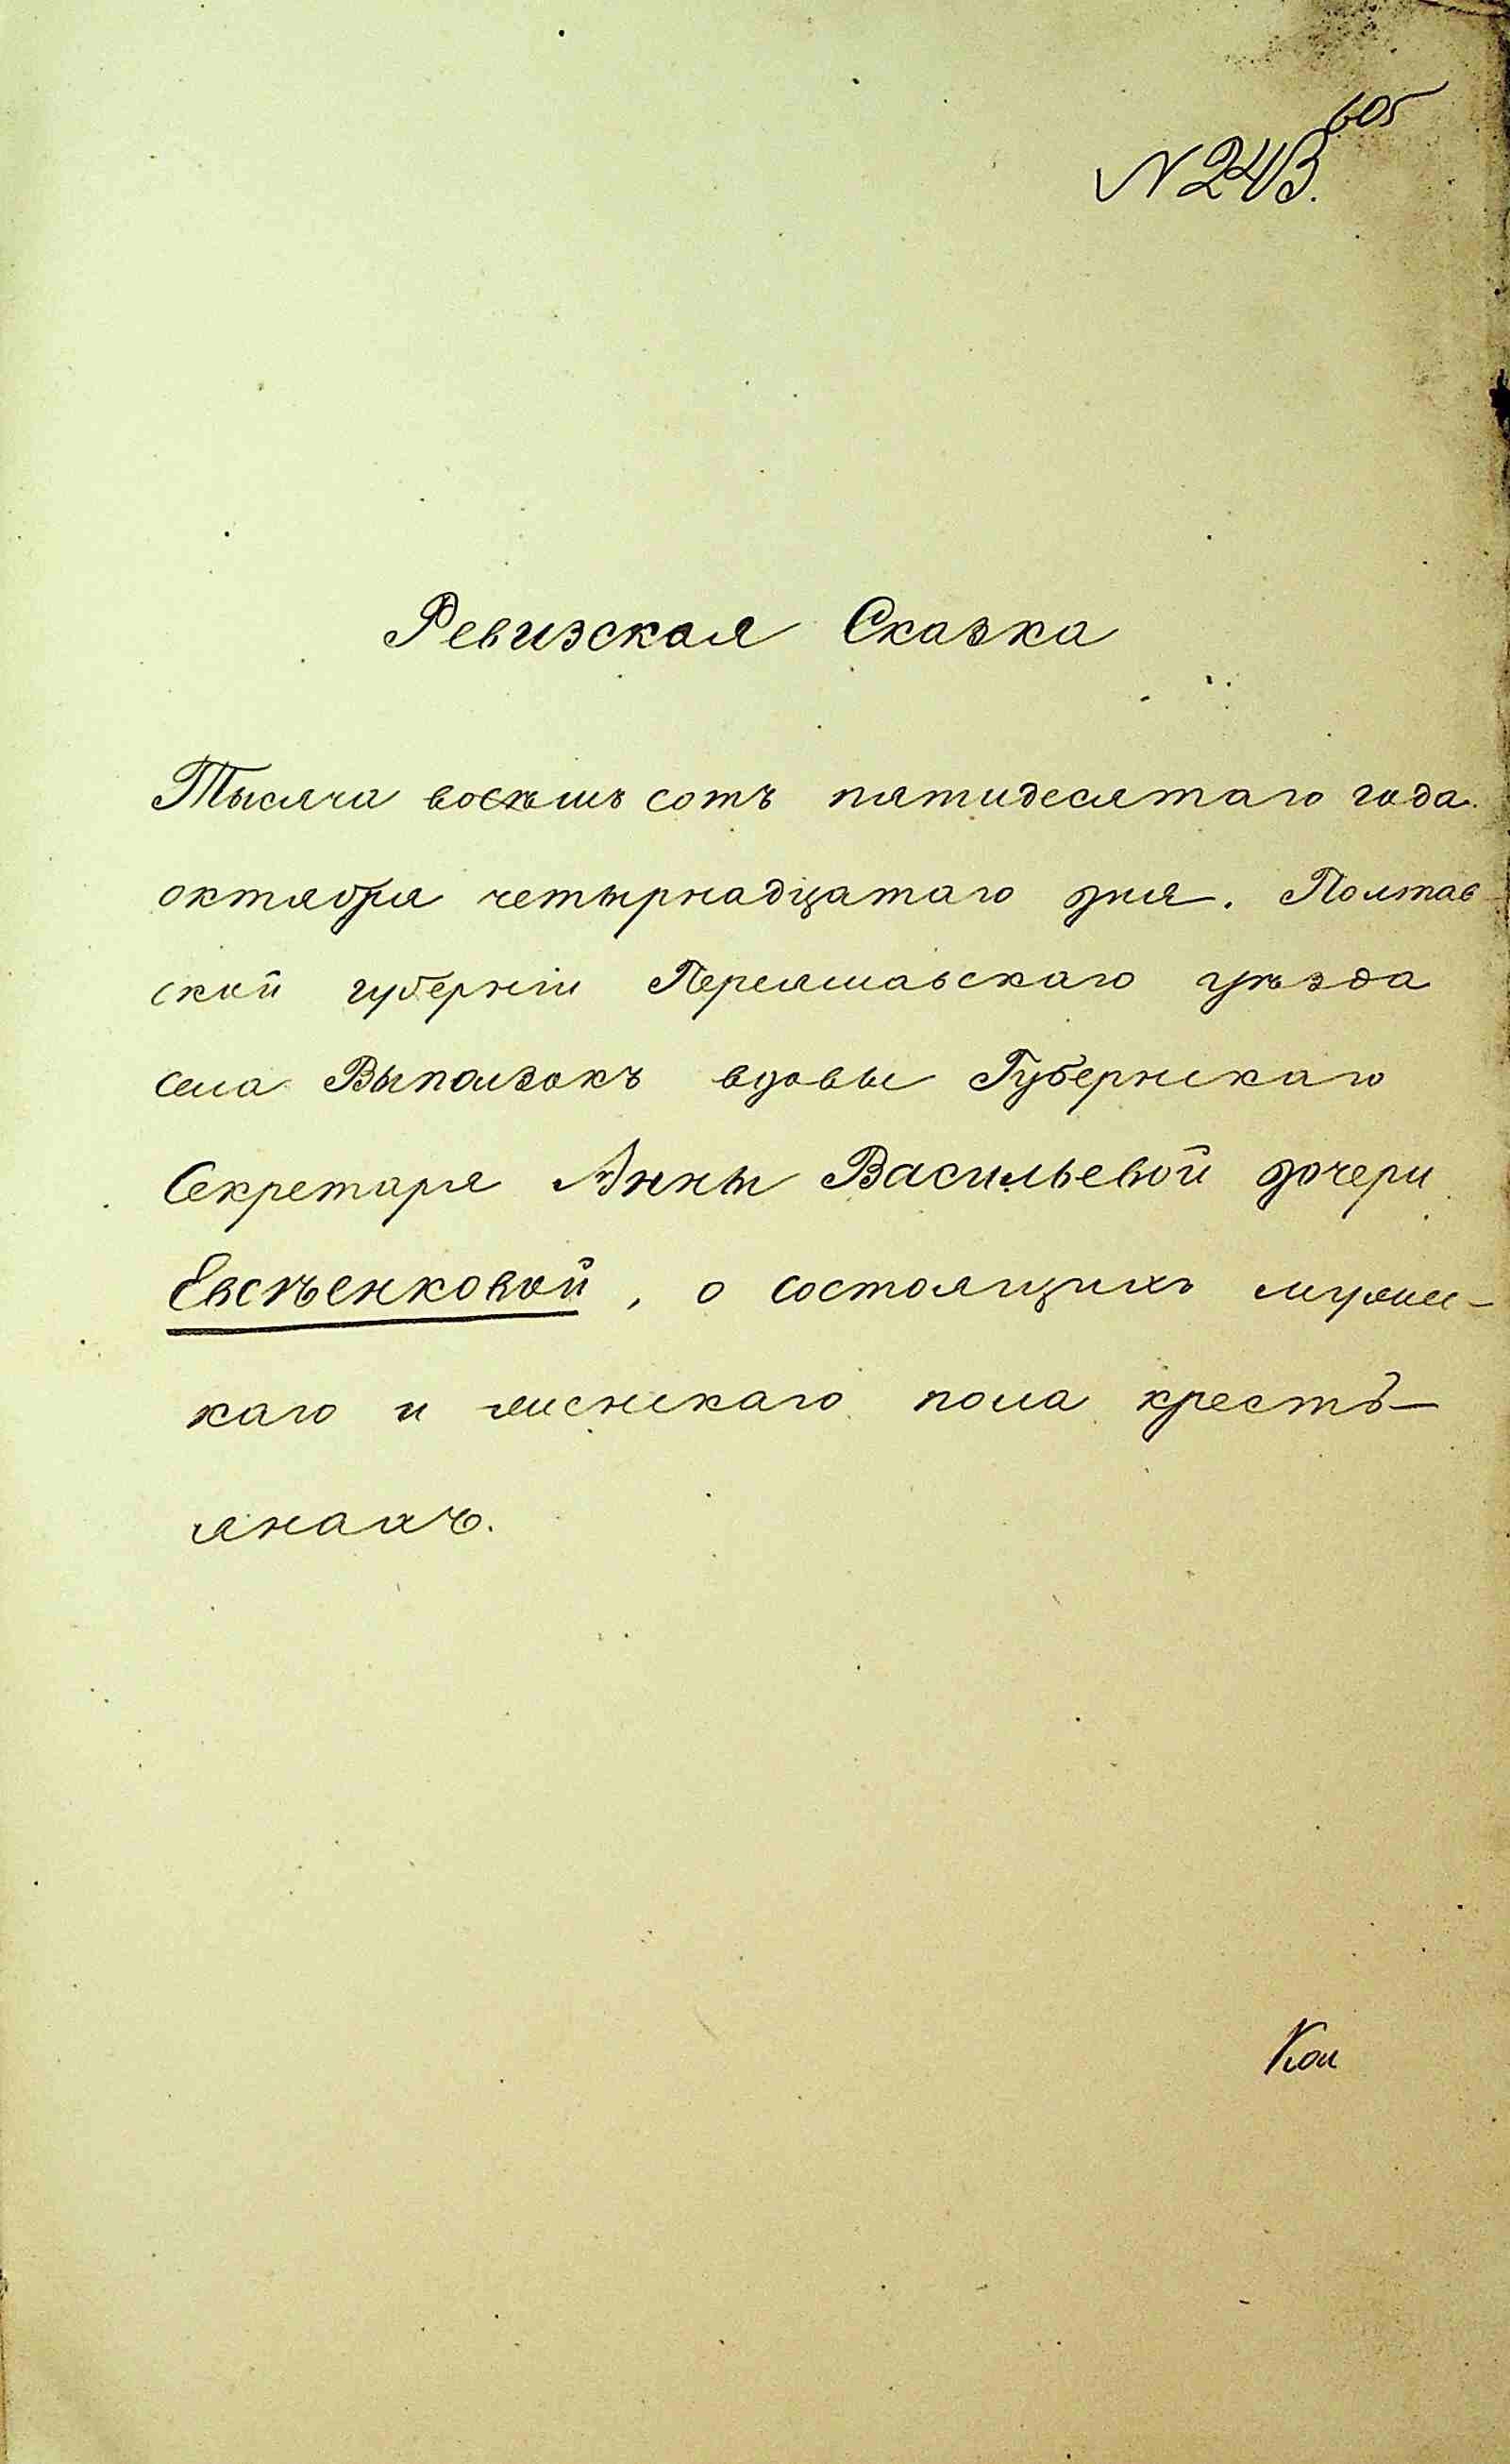 605
N 243.
Ревизская Сказка
Тысяча восемь сотъ пятидесятаго года
октября четырнадцатаго дня. Полтав-
ской губерніи Переяславскаго уѣзда
села Выползокъ вдовы Губернскаго
Секретаря Анны Васильевой дочери
Евсѣенковой, о состоящихъ мужес-
каго и женскаго пола кресть-
янахъ.